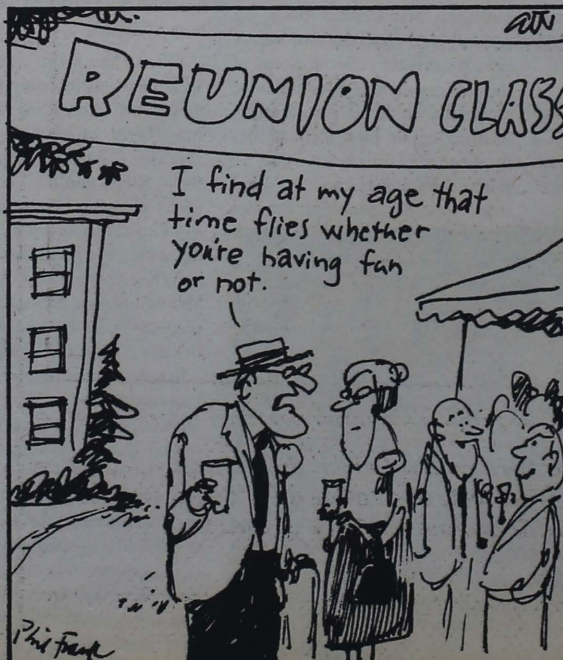 REUNION CLASS
I find at my age that
time flies whether
you're having fun
or not.
Phil Frank